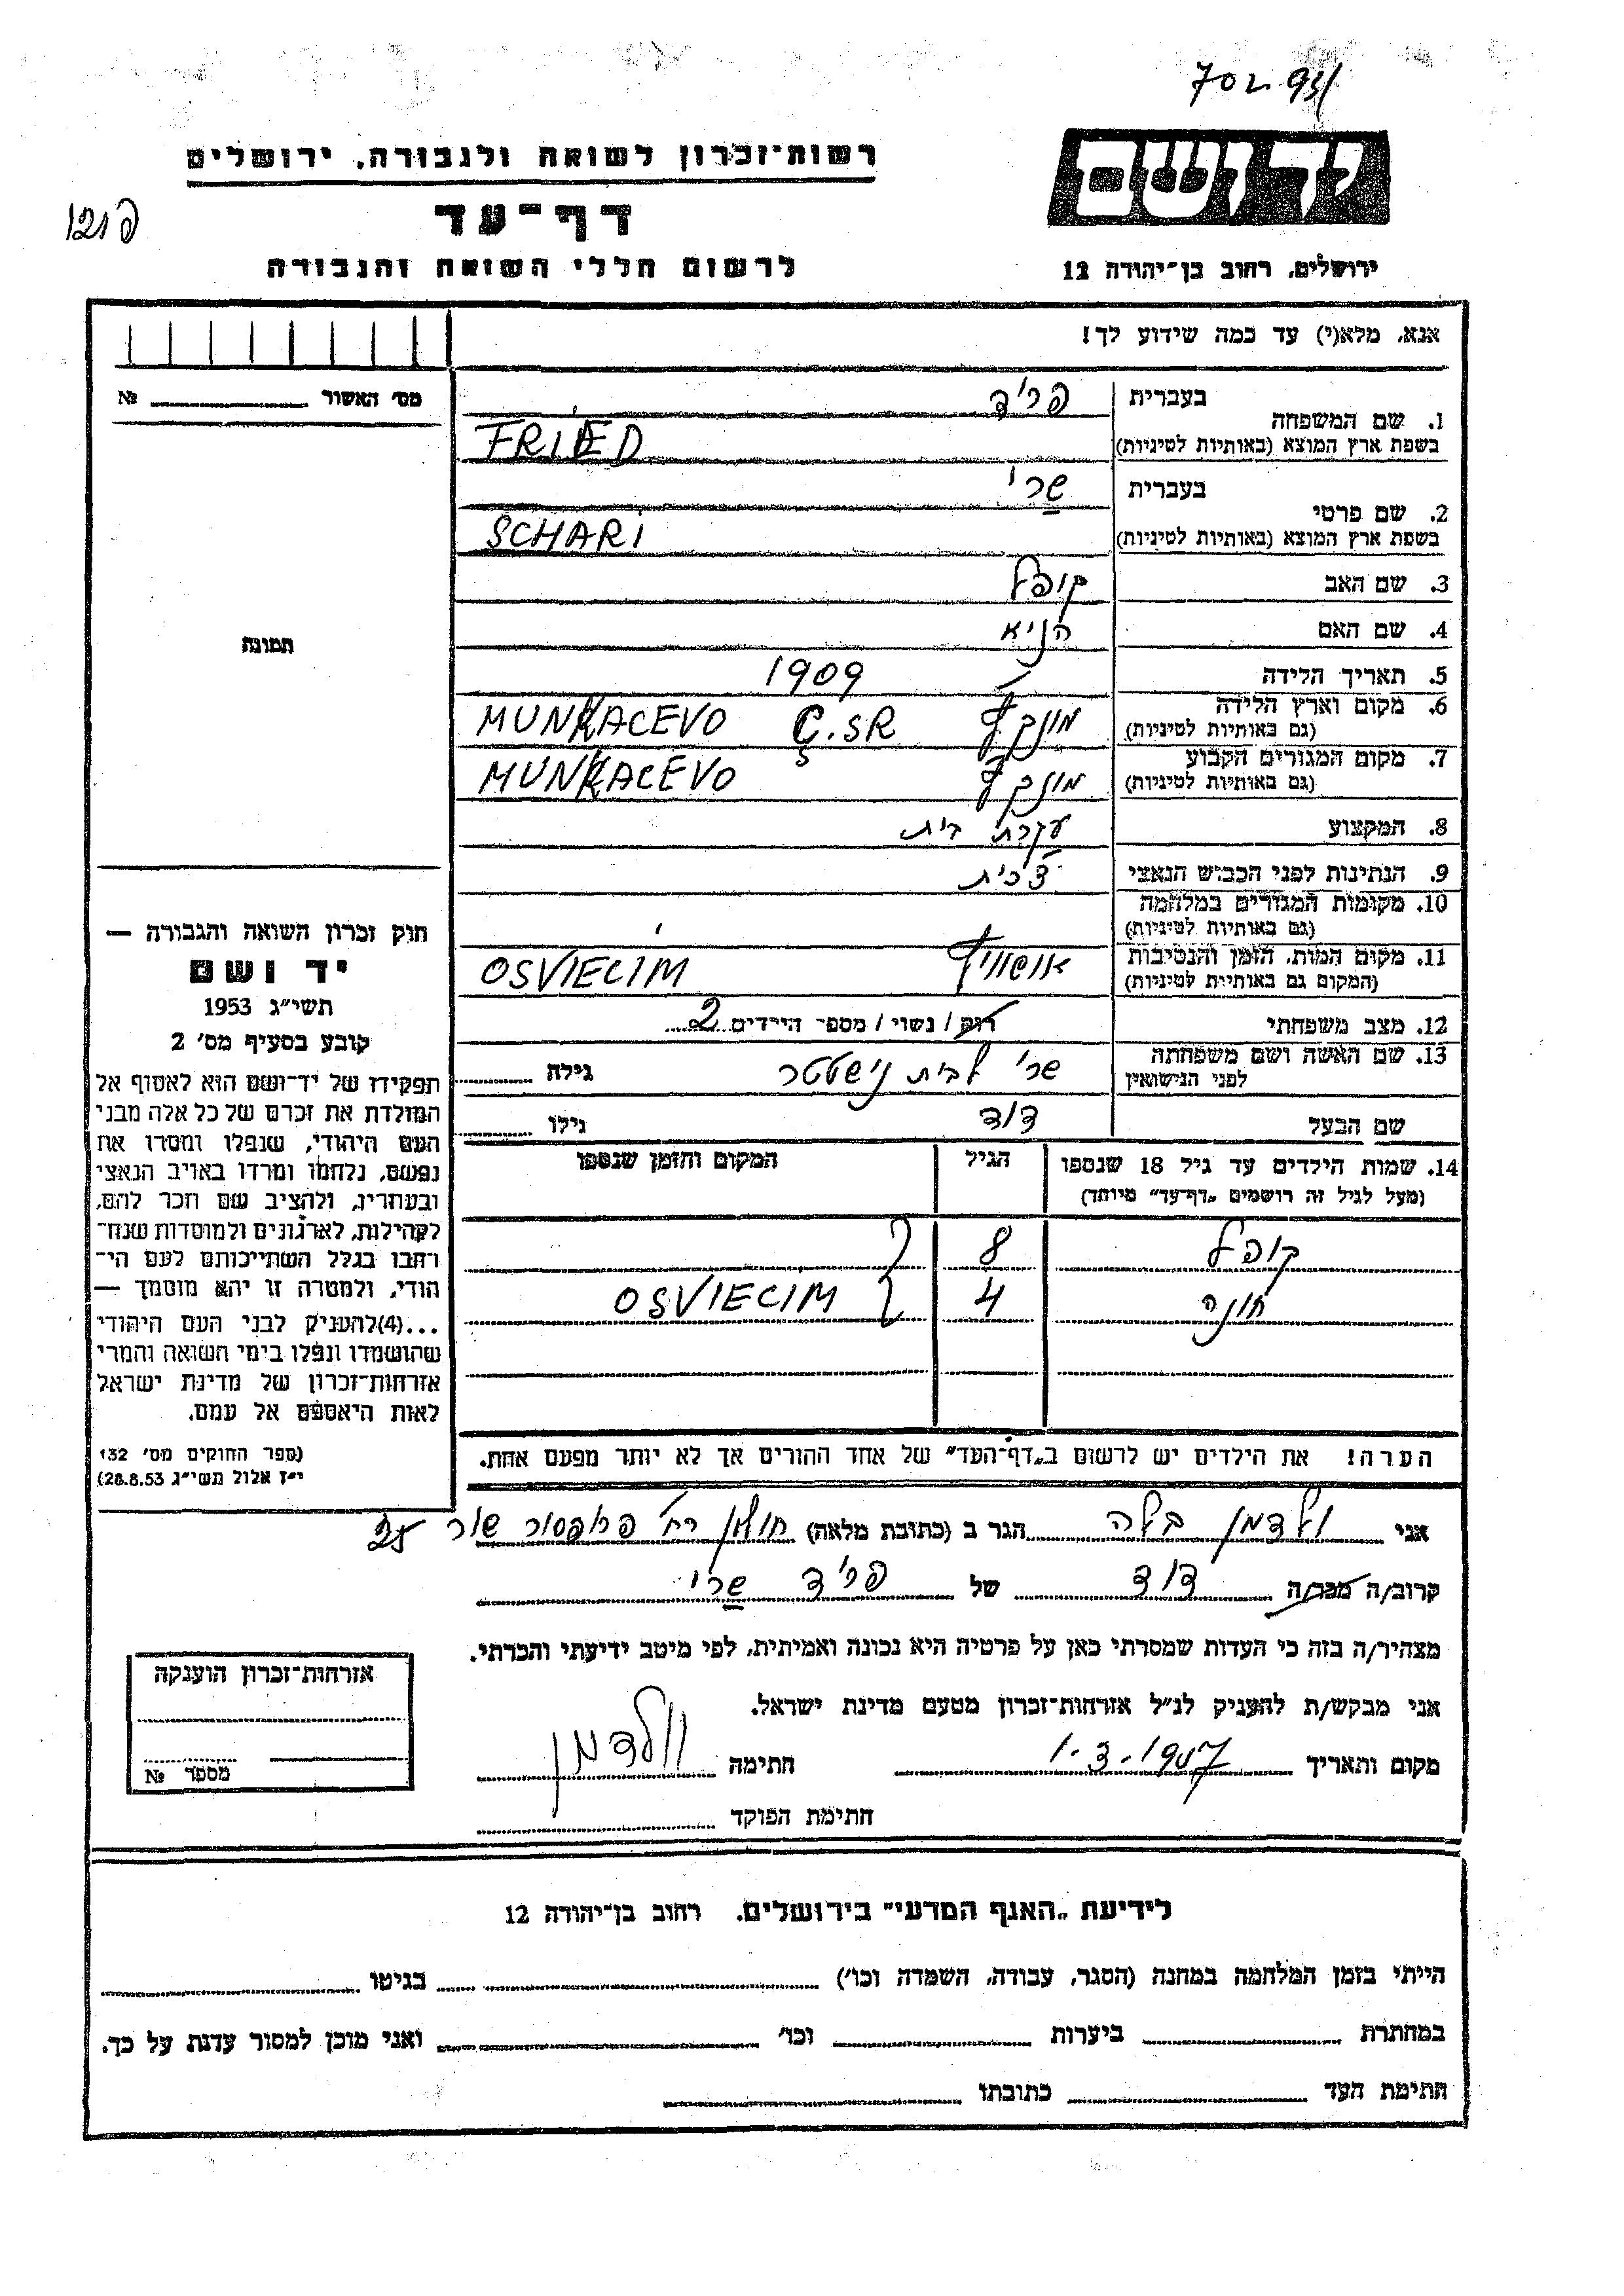 יד ושם
רשות־זכרון לשואה ולגבורה, ירושלים
דף־עד
לרשום חללי השואה והגבורה
ירושלים, רחוב בן־יהודה 12
אנא, מלא(י) עד כמה שידוע לך!
מס' האשור № 
1. שם המשפחה בעברית פריד
בשפת ארץ המוצא (באותיות לטיניות) FRIED
2. שם פרטי בעברית שרי
בשפת ארץ המוצא (באותיות לטיניות) SCHARI
3. שם האב קופל
4. שם האם הניא
5. תאריך הלידה 1909
6. מקום וארץ הלידה (גם באותיות לטיניות) מונקץ MUNKACEVO Č.SR
7. מקום המגורים הקבוע (גם באותיות לטיניות) מונקץ MUNKACEVO
8. המקצוע עקרת בית
9. הנתינות לפני הכבוש הנאצי צ'כית
10. מקומות המגורים במלחמה (גם באותיות לטיניות)
11. מקום המות, הזמן והנסיבות (המקום גם באותיות לטיניות) אושוויץ OSVIECIM
12. מצב משפחתי רווק / נשוי / מספר הילדים 2
13. שם האשה ושם משפחתה לפני הנישואין שרי לבית נישטטר גילה
שם הבעל דוד גילו
14. שמות הילדים עד גיל 18 שנספו הגיל המקום והזמן שנספו
(מעל לגיל זה רושמים „דף־עד” מיוחד)
קופל 8
חונה 4 OSVIECIM
הערה! את הילדים יש לרשום ב„דף־העד” של אחד ההורים אך לא יותר מפעם אחת.
תמונה
חוק זכרון השואה והגבורה —
יד ושם
תשי״ג 1953
קובע בסעיף מס' 2
תפקידו של יד־ושם הוא לאסוף אל
המולדת את זכרם של כל אלה מבני
העם היהודי, שנפלו ומסרו את
נפשם, נלחמו ומרדו באויב הנאצי
ובעוזריו, ולהציב שם וזכר להם,
לקהילות, לארגונים ולמוסדות שנח־
רחבו בגלל השתייכותם לעם הי־
הודי, ולמטרה זו יהא מוסמך —
...(4)להעניק לבני העם היהודי
שהושמדו ונפלו בימי השואה והמרי
אזרחות־זכרון של מדינת ישראל
לאות היאספם אל עמם.
(ספר החוקים מס' 132
י״ז אלול תשי״ג 28.8.53)
אני ולדמן בלה הגר ב (כתובת מלאה) חולון רח' פרופסור שור 25
קרוב/ה מכר/ה דוד של פריד שרי
מצהיר/ה בזה כי העדות שמסרתי כאן על פרטיה היא נכונה ואמיתית, לפי מיטב ידיעתי והכרתי.
אני מבקש/ת להעניק לנ״ל אזרחות־זכרון מטעם מדינת ישראל.
מקום ותאריך 1-3-1957 חתימה וולדמן
חתימת הפוקד
אזרחות־זכרון הוענקה
מספר №
לידיעת „האגף המדעי” בירושלים, רחוב בן־יהודה 12
הייתי בזמן המלחמה במחנה (הסגר, עבודה, השמדה וכו') בגיטו
במחתרת ביערות וכו' ואני מוכן למסור עדות על כך.
חתימת העד כתובתו